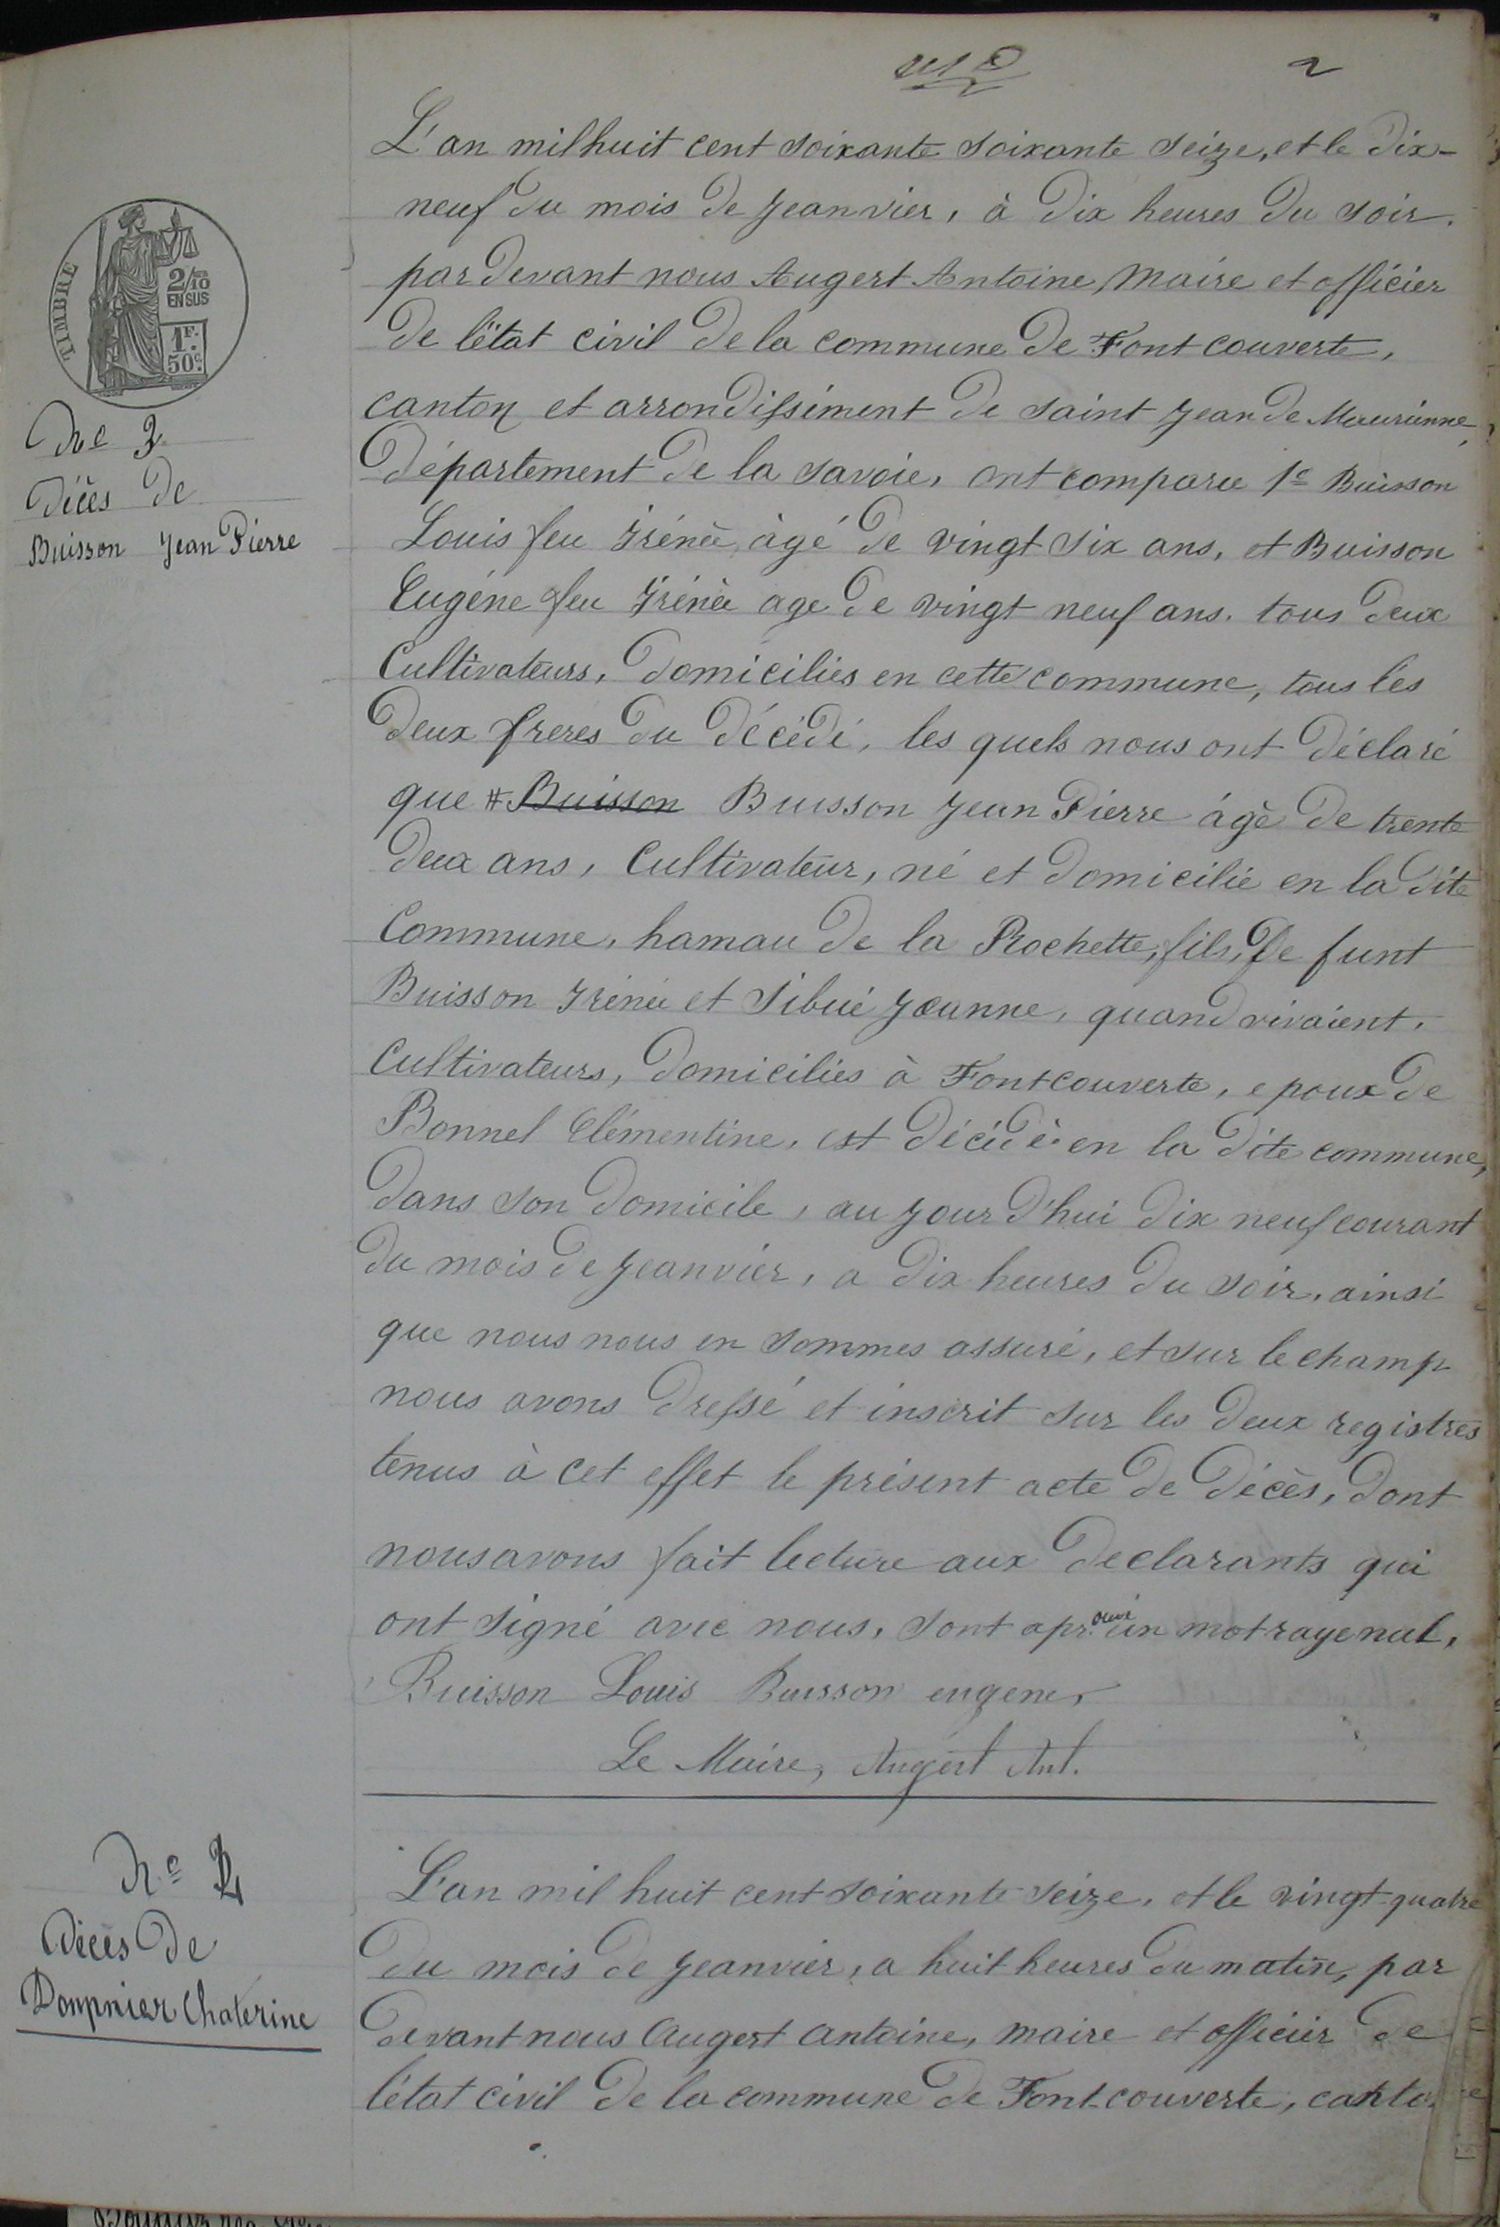 2
L'an mil huit cent soixante soixante seize, et le dix-
neuf du mois de Jeanvier, à dix heures du soir.
par devant nous Augert Antoine, Maire et officier
de l'état civil de la commune de Fontcouverte,
canton et arrondissément de saint Jean de Maurienne,
département de la savoie, ont comparu 1º Buisson
Louis feu Irénée, âgé de vingt six ans, et Buisson
Eugéne feu Irénée age de vingt neuf ans. tous deux
Cultivateurs, domiciliés en cette commune, tous les
deux freres du décédé, les quels nous ont déclaré
que # Buisson Buisson Jean Pierre âgé de trente
deux ans, Cultivateur, né et domicilié en la dite
Commune, hamau de la Rochette, fils, de funt
Buisson Irénée et Sibué Jeanne, quand vivaient,
Cultivateurs, domiciliés à Fontcouverte, epoux de
Bonnel Clémentine, est décédé en la dite commune,
dans son domicile, au jour d'hui dix neuf courant
du mois de Jeanvier, a dix heures du soir, ainsi
que nous nous en sommes assuré, et sur le champ
nous avons dressé et inscrit sur les deux registres
tenus à cet effet le présent acte de décès, dont
nous avons fait lecture aux declarants qui
ont signé avec nous, sont aprouvé un mot raye nul,
Buisson Louis Buisson eugene,
Le Maire, Augert Ant.
TIMBRE
2/10
EN SUS
1F.
50c.
Nº 3
Décès de
Buisson Jean Pierre
Nº 4
Décès de
Dompnier Chaterine
L'an mil huit cent soixante seize, et le vingt-quatre
du mois de Jeanvier, a huit heures du matin, par
devant nous Augert Antoine, maire et officier de
l'état civil de la commune de Font-couverte, canto